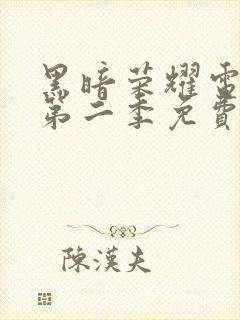 黑暗荣耀雷
第二季免費
陳漢夫